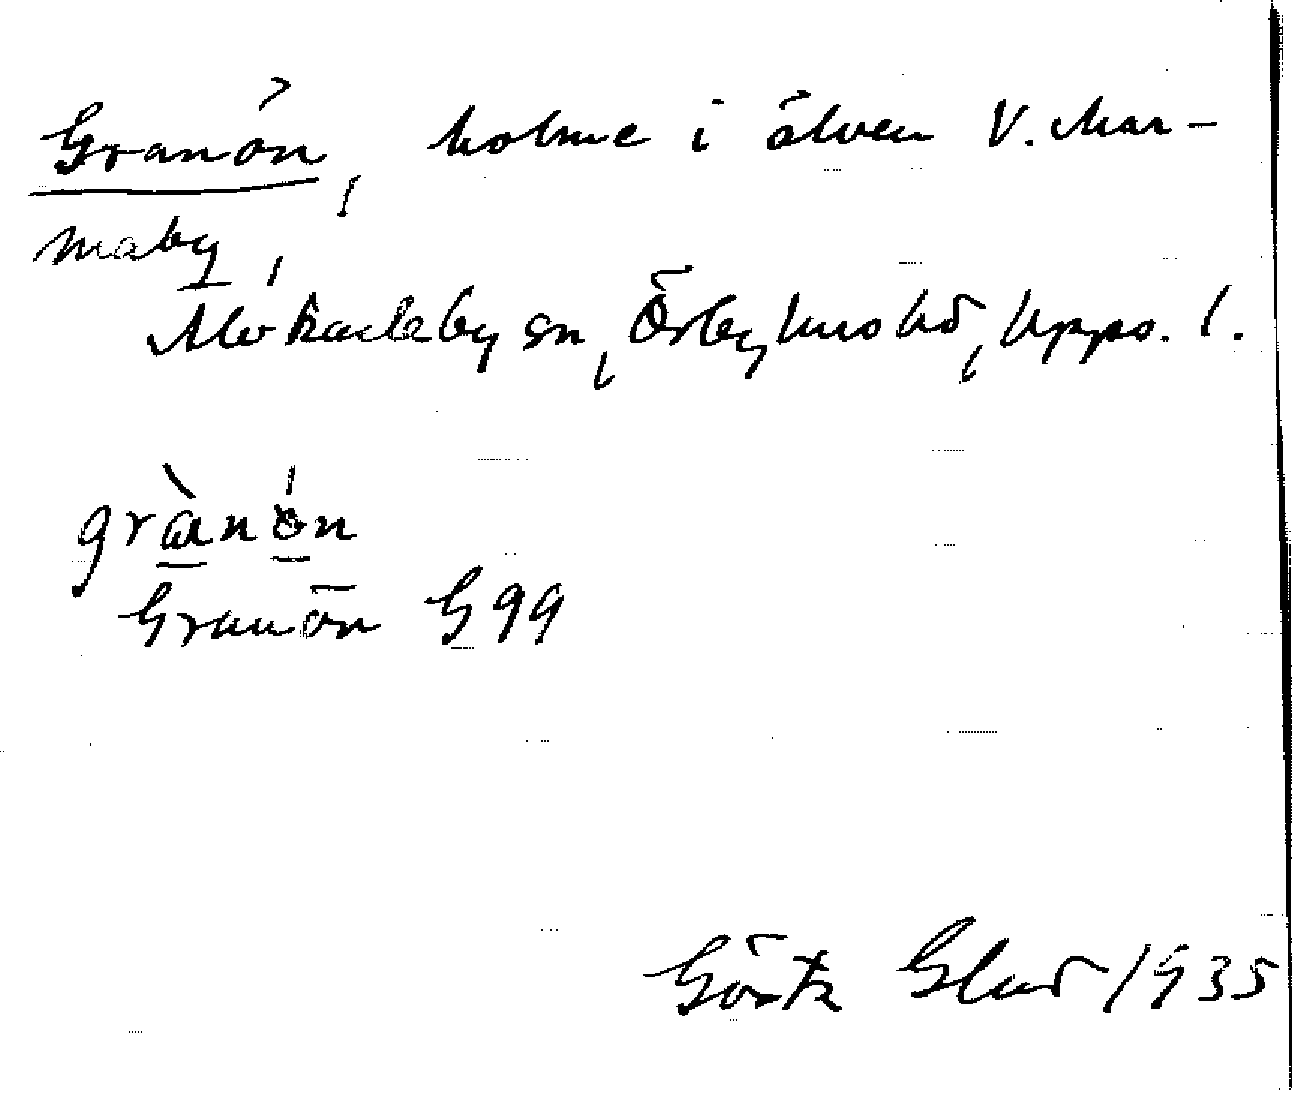 Granön, holme i älven V. Mar-
maby,
Älvkarleby sn, Örbyhus hd, Upps. l.
grànön
Granön G 99
Gösta Glad 1935